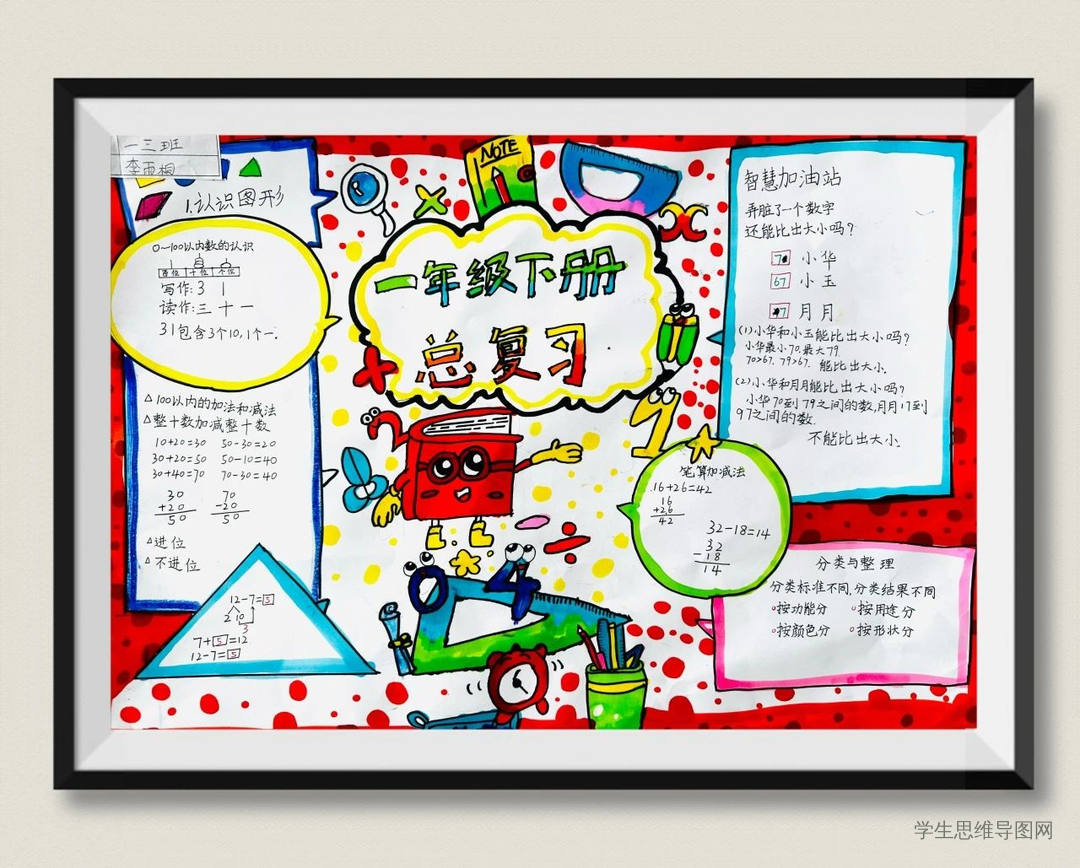 一三班
李雨桐
1.认识图形
0~100以内数的认识
百位 十位 个位
写作:3 1
读作:三十一
31包含3个10,1个一.
△100以内的加法和减法
△整十数加减整十数
10+20=30 50-30=20
30+20=50 50-10=40
30+40=70 70-30=40
30 70
+20 -20
50 50
△进位
△不进位
12-7=5
2 10
3
7+5=12
12-7=5
NOTE
一年级下册
总复习
智慧加油站
弄脏了一个数字
还能比出大小吗?
7 小华
67 小玉
7 月月
(1)小华和小玉能比出大小吗?
小华最小70.最大79.
70>67. 79>67. 能比出大小.
(2)小华和月月能比出大小吗?
小华70到79之间的数,月月17到
97之间的数.
不能比出大小.
笔算加减法
16+26=42
16
+26
42
32-18=14
32
-18
14
分类与整理
分类标准不同,分类结果不同
按功能分 按用途分
按颜色分 按形状分
2
1
0 4
学生思维导图网